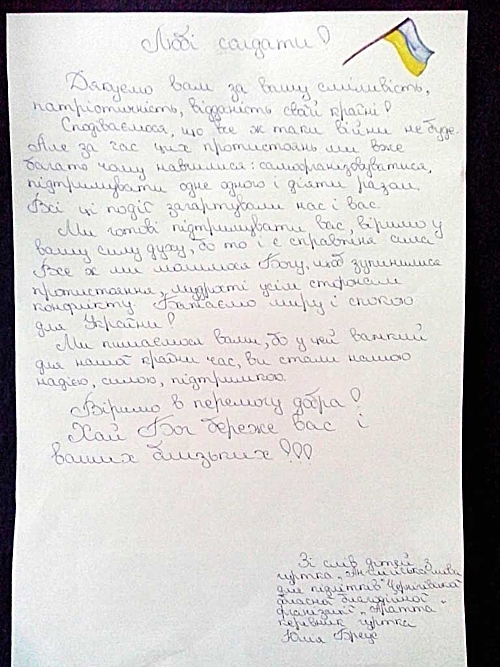 Любі солдати!
Дякуємо вам за вашу сміливість,
патріотичність, відданість своїй країні!
Сподіваємося, що все ж таки війни не буде.
Але за час цих протистоянь ми вже
багато чому навчилися: самоорганізовуватися,
підтримувати одне одного і діяти разом.
Всі ці події загартували нас і вас.
Ми готові підтримувати вас, віримо у
вашу силу духу, бо то і є справжня сила.
Все ж ми молимося Богу, щоб зупинилися
протистояння, мудрості усім сторонам
конфлікту. Бажаємо миру і спокою
для України!
Ми пишаємося вами, бо у цей важкий
для нашої країни час, ви стали нашою
надією, силою, підтримкою.
Віримо в перемогу добра!
Хай Бог береже вас і
ваших близьких!!!
Зі слів дітей з
гуртка "Англійська мова
для підлітків" Чернігівської
обласної благодійної
організації "Аратта"
керівник гуртка
Юлія